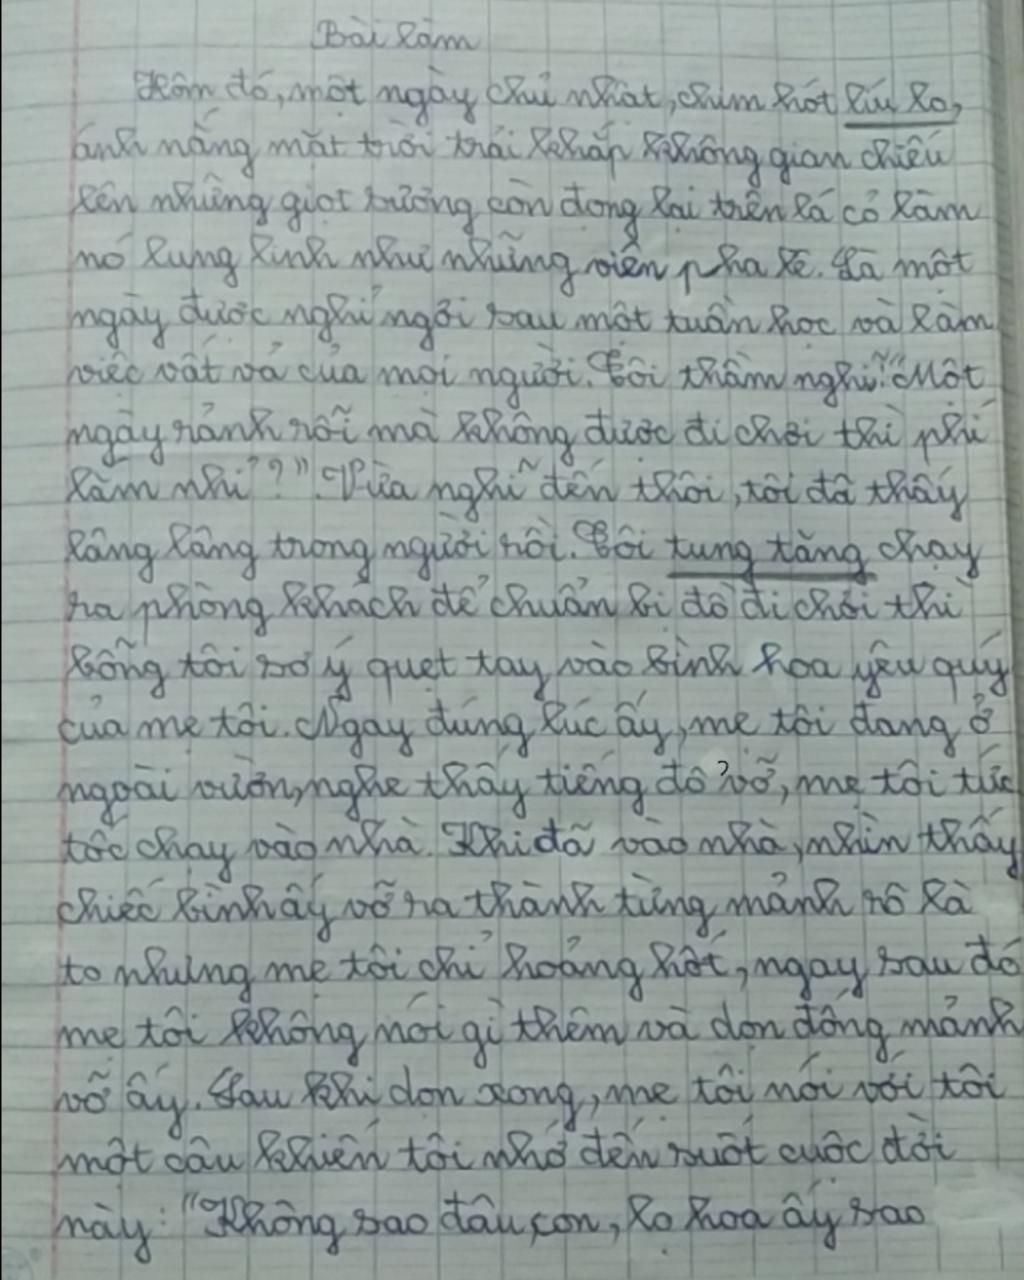 Bài làm
Hôm đó, một ngày chủ nhật, chim hót líu lo,
ánh nắng mặt trời trải khắp không gian chiếu
lên những giọt sương còn đọng lại trên lá cỏ làm
nó lung linh như những viên pha lê. Là một
ngày được nghỉ ngơi sau một tuần học và làm
việc vất vả của mọi người. Tôi thầm nghĩ: "Một
ngày rảnh rỗi mà không được đi chơi thì phí
lắm nhỉ?". Vừa nghĩ đến thôi, tôi đã thấy
lâng lâng trong người rồi. Tôi tung tăng chạy
ra phòng khách để chuẩn bị đồ đi chơi thì
bỗng tôi sơ ý quẹt tay vào bình hoa yêu quý
của mẹ tôi. Ngay đúng lúc ấy, mẹ tôi đang ở
ngoài vườn, nghe thấy tiếng đổ vỡ, mẹ tôi tức
tốc chạy vào nhà. Khi đã vào nhà, nhìn thấy
chiếc bình ấy vỡ ra thành từng mảnh rõ là
to nhưng mẹ tôi chỉ hoảng hốt, ngay sau đó
mẹ tôi không nói gì thêm và dọn đống mảnh
vỡ ấy. Sau khi dọn xong, mẹ tôi nói với tôi
một câu khiến tôi nhớ đến suốt cuộc đời
này: "Không sao đâu, con, lọ hoa ấy sao